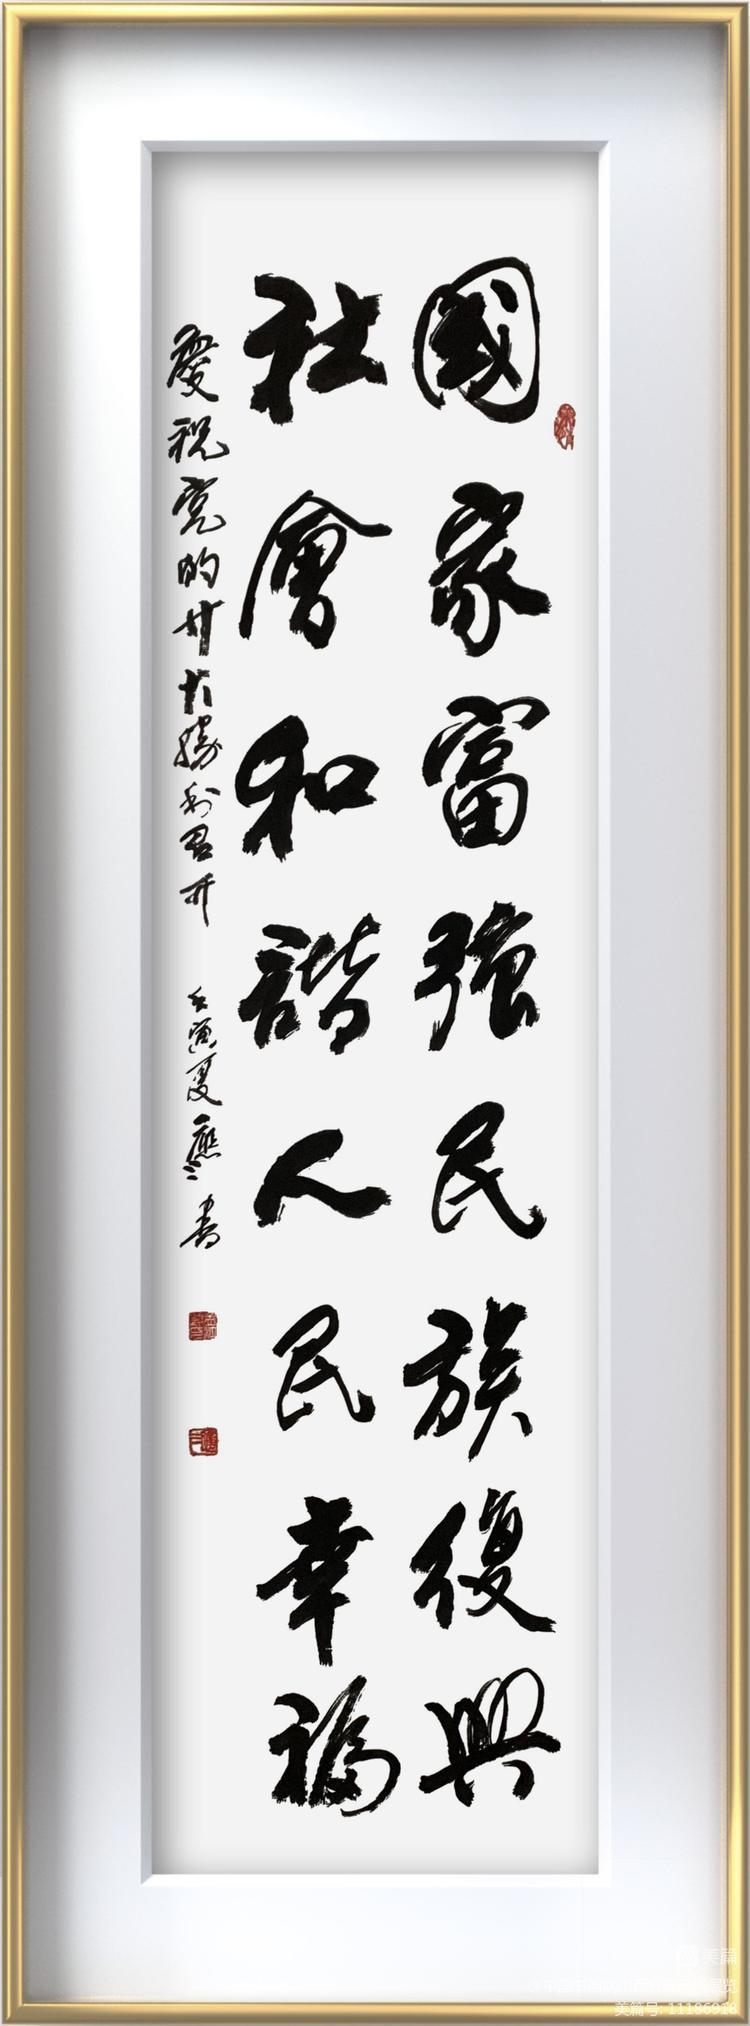 國家富強民族復興
社會和諧人民幸福
慶祝党的廿大勝利召开
壬寅夏應書
美篇
美篇号: 11186918